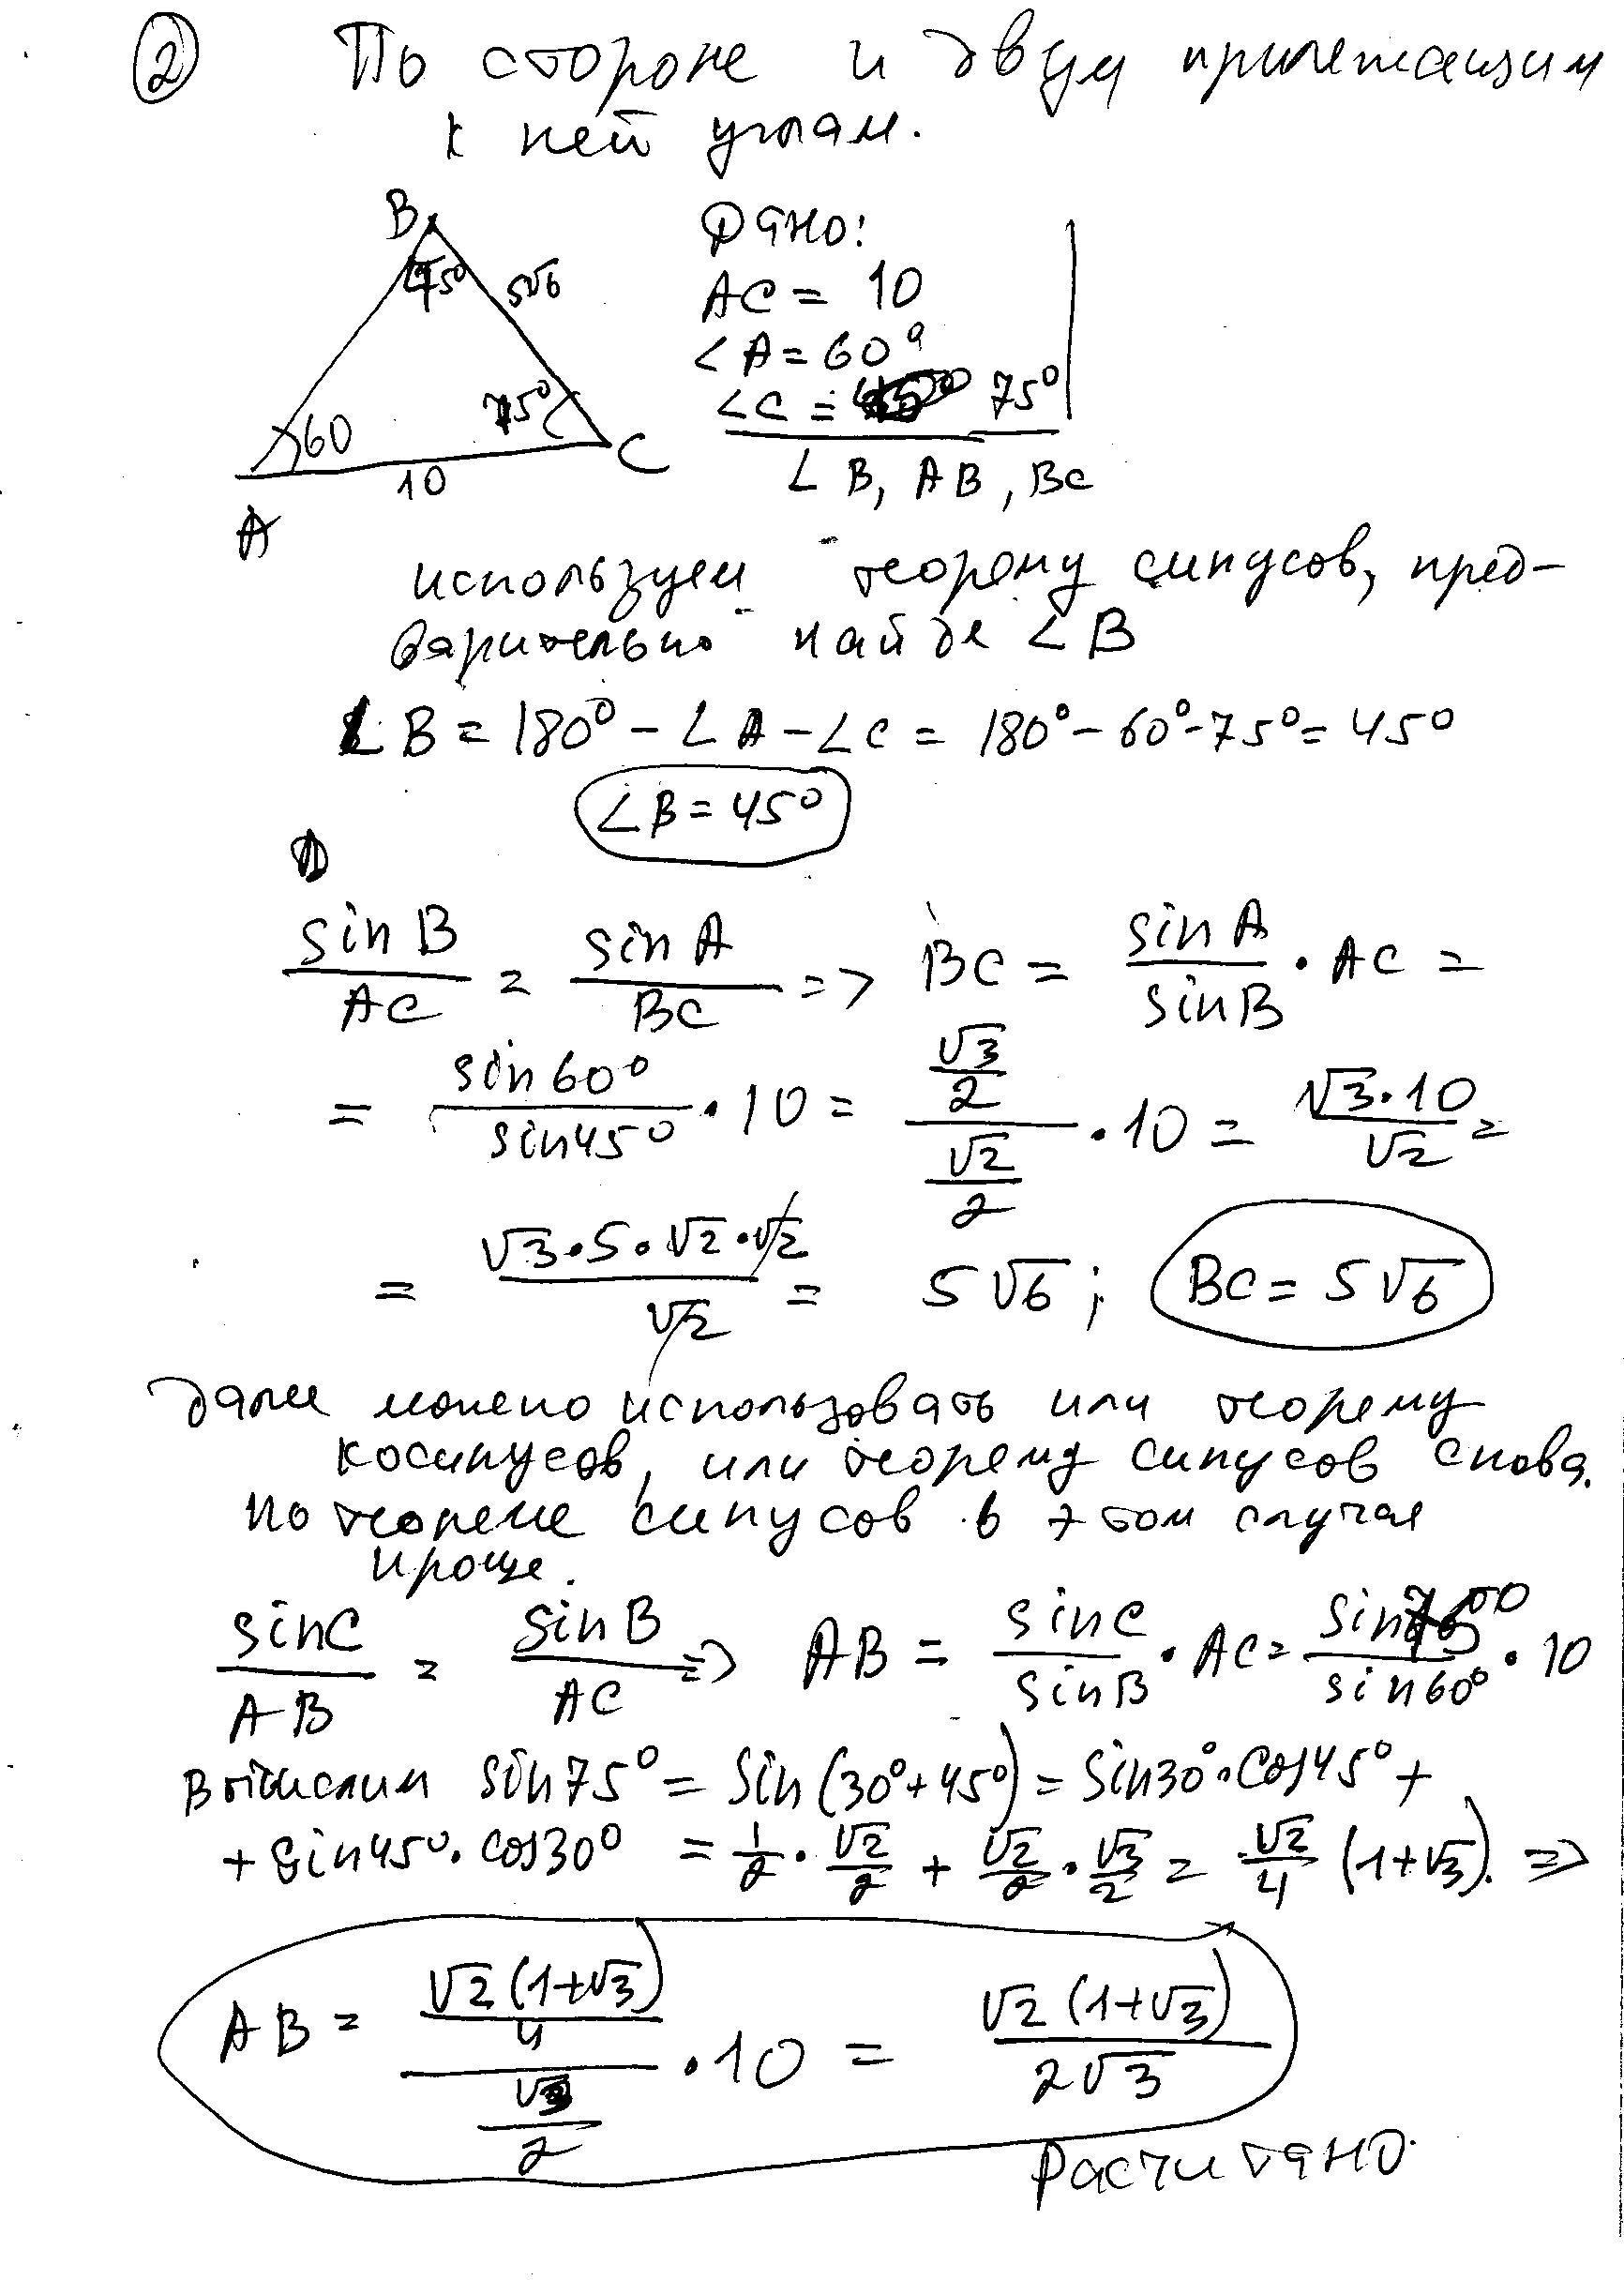 ② По стороне и двум прилежащим
к ней углам.
B
45°
5√6
60
75°
10
A
C
Дано:
AC = 10
∠A = 60°
∠C = 75°
∠B, AB, BC
используем теорему синусов, пред-
варительно найдя ∠B
∠B = 180° - ∠A - ∠C = 180° - 60° - 75° = 45°
∠B = 45°
sin B / AC = sin A / BC => BC = sin A / sin B · AC =
= sin 60° / sin 45° · 10 = (√3/2) / (√2/2) · 10 = √3·10 / √2 =
= √3·5·√2·√2 / √2 = 5√6; BC = 5√6
далее можно использовать или теорему
косинусов, или теорему синусов снова.
По теореме синусов в этом случае
проще.
sin C / AB = sin B / AC => AB = sin C / sin B · AC = sin 75° / sin 60° · 10
Вычислим sin 75° = sin (30° + 45°) = sin 30° · cos 45° +
+ sin 45° · cos 30° = 1/2 · √2/2 + √2/2 · √3/2 = √2/4 (1+√3). =>
AB = (√2 (1+√3) / 4) / (√3/2) · 10 = √2 (1+√3) / 2√3
Расчитано